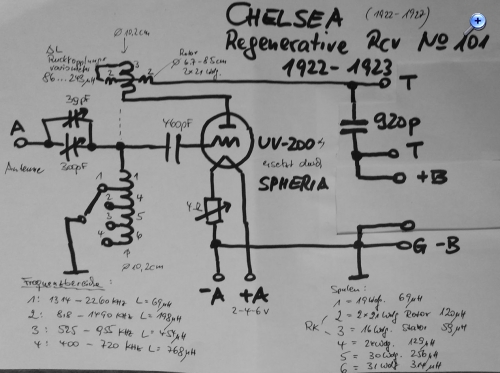 CHELSEA (1922-1927)
Regenerative Rcv No 101
1922-1923
ø 10,2cm
ΔL
Rückkopplungs
variometer
86...243µH
Rotor
2x21Wdg.
3
2
2
T
39pF
A
Antenne
300pF
460pF
UV-200
ersetzt durch
SPHERIA
920p
T
+B
1
2
3
4
1
4
5
6
4Ω
ø 10,2cm
G -B
-A +A
2-4-6V
Frequenzbereiche:
1: 1314 - 2260 KHz L = 69µH
2: 818 - 1490 KHz L = 198µH
3: 525 - 955 KHz L = 454µH
4: 400 - 720 KHz L = 768µH
Spulen:
1 = 19Wdg. 69µH
RK 2 = 2x21Wdg Rotor 120µH
3 = 16Wdg Stator 59µH
4 = 24Wdg 129µH
5 = 30Wdg 256µH
6 = 31Wdg 314µH